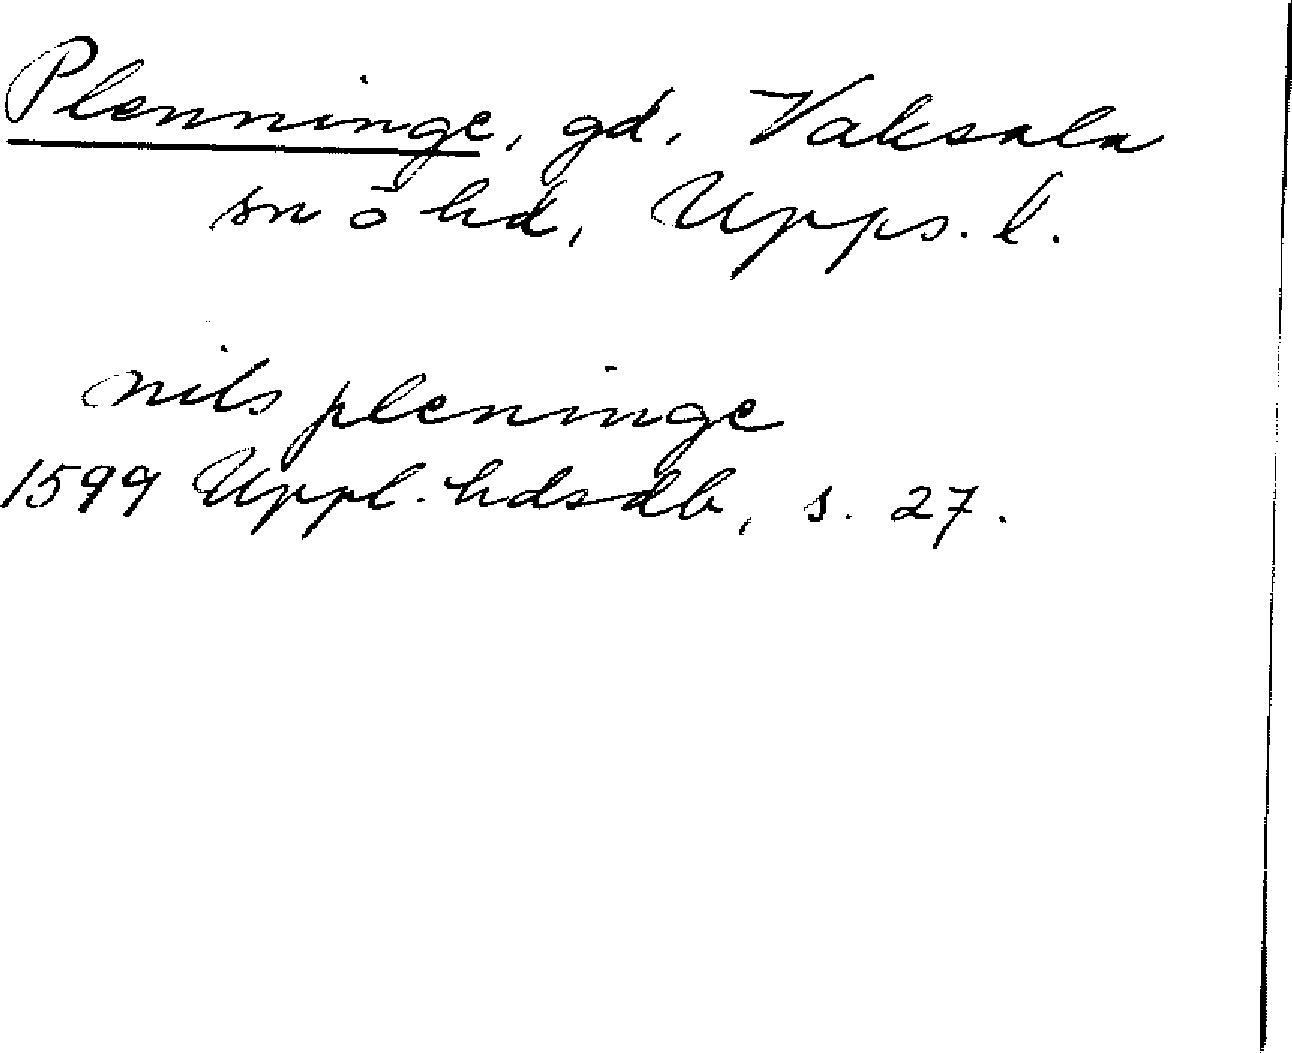 Plenninge, gd, Vaksala
sn o hd, Upps. l.
nils pleninge
1599 Uppl. hdsdb, s. 27.